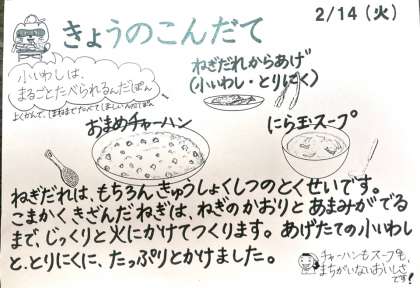 きょうのこんだて
2/14（火）
小いわしは、
まるごとたべられるんだぽん
ねぎだれからあげ
(小いわし・とりにく)
おまめチャーハン
にら玉スープ
ねぎだれは、もちろんきゅうしょくしつのとくせいです。
こまかくきざんだねぎは、ねぎのかおりとあまみがでる
まで、じっくりと火にかけてつくります。あげたての小いわし
と、とりにくに、たっぷりとかけました。
チャーハンもスープも、
まちがいないおいしさ
です!